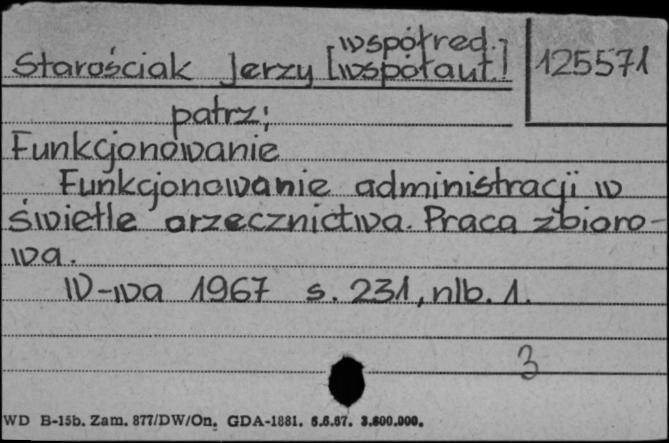 współred.
Starościak Jerzy [współaut.] 125571
patrz:
Funkcjonowanie
Funkcjonowanie administracji w
świetle orzecznictwa. Praca zbioro-
wa.
W-wa 1967 s. 231, nlb. 1.
3
WD B-15b. Zam. 877/DW/On. GDA-1881. 6.6.67. 3.600.000.